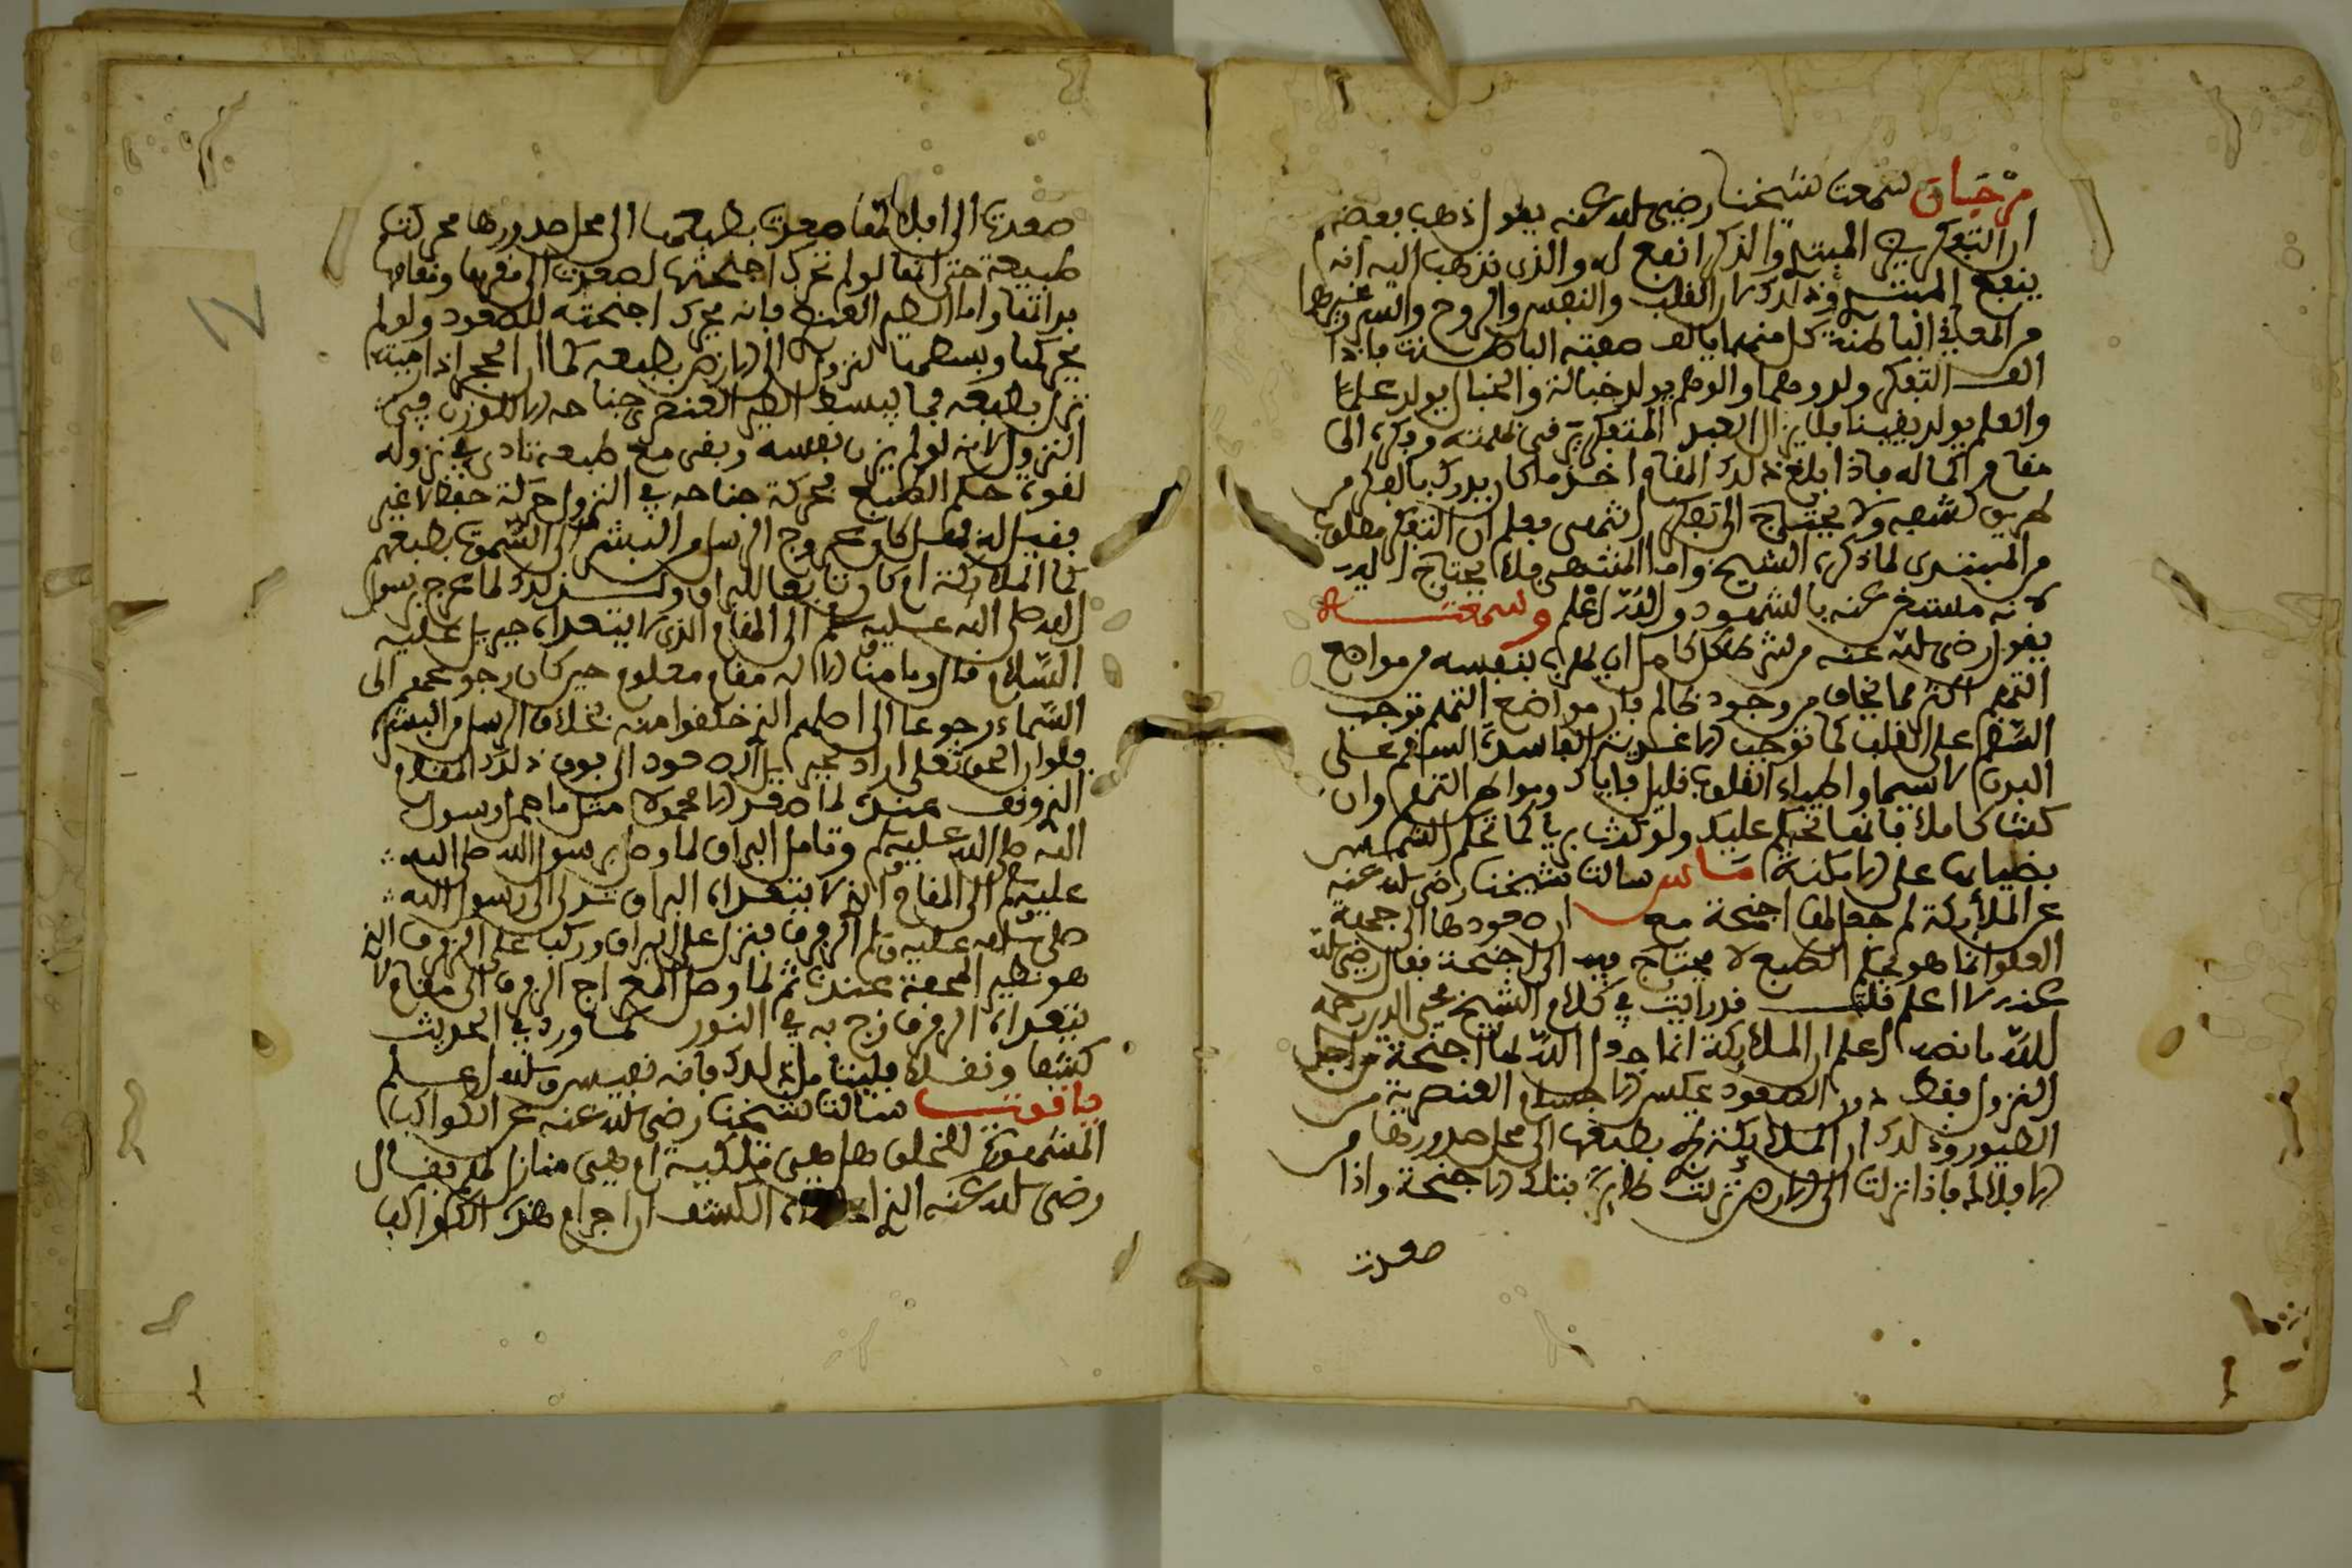 مرجان سمعت شيخنا رضي الله عنه يقول ذهب بعضهم
ان التفكر يضر المبتدي والذكر انفع له والذي نذهب اليه انه
ينفع المبتدي وذلك ان القلب والنفس والروح والسر وغيرها
من المعاني الباطنة كل منهما يالف صفته الباطنة فاذا
الف التفكر ولد وهما والوهم يولد خيالا والخيال يولد علما
والعلم يولد يقينا فلا يزال العبد المتفكر يترقى بهمته وفكره الى
مقام الكمال فاذا بلغ ذلك المقام اخذ ما كان يدرك بالفكر من
طريق كشفه ولا يحتاج الى تفكر انتهى فعلم ان التفكر مطلوب
من المبتدي لما ذكره الشيخ واما المنتهى فلا يحتاج اليه
لانه مستغن عنه بالشهود والله اعلم وسمعته
يقول رضي الله عنه من شرط كل كامل ان يهرب بنفسه من مواضع
التهم اكثر مما يخاف من وجود ظالم فان مواضع التهم توجب
السقم على القلب كما توجب الاغذية الفاسدة السقم على
البدن لاسيما واطباء القلوب قليل فاياك ومواطن التهم وان
كنت كاملا فانها تحكم عليك ولو كنت بريا كما تحكم الشمس
بضيائها على الامكنة ماس سالت شيخنا رضي الله عنه
عن الملائكة لم جعل لها اجنحة مع ان صعودها الى جهة
العلو انما هو بحكم الطبع لا يحتاج فيه الى اجنحة فقال رضي الله
عنه لا اعلم قلت قد رايت في كلام الشيخ محي الدين رحمه
الله ما نصه اعلم ان الملائكة انما جعل الله لها اجنحة من اجل
النزول فقط دون الصعود عكس الاجسام العنصرية من
الطيور وذلك ان الملائكة تجري بطبعها الى محل صدورها من
الافلاك فاذا نزلت الى الارض نزلت طائرة بتلك الاجنحة واذا
صعدت
صعدت الى افلاكها صعدت بطبعها الى محل صدورها بحركة
طبيعة حتى انها لو لم تحرك اجنحتها لصعدت الى مقرها ومقامها
بذاتها واما الطير العنصري فانه يحرك اجنحته للصعود ولو لم
يحركها ويبسطها لنزول الى الارض بطبعه كما ان الحجر اذا رميته
نزل بطبعه فما يبسط الطير العنصري جناحه الا للوزن في
النزول لانه لو لم يزن نفسه وبقى مع طبعه تاذى في نزوله
لقوة حكم الطبع فحركة جناحه في النزول حركة حفظ لا غير
فقيل له فهل كان عروج الرسل من البشر الى السموات بطبعهم
كما الملائكة ام كان تابعا للبراق وكذلك لما عرج برسول
الله صلى الله عليه وسلم الى المقام الذي لا يتعداه جبريل عليه
السلام قال وما منا الا له مقام معلوم حين كان رجوعهم الى
السماء رجوعا الى اصلهم الذي خلقوا منه بخلاف الرسل من البشر
فلو ان الحق تعالى اراد بجبريل الصعود الى فوق ذلك المقام
الذي وقف عنده لما صعد الا محمولا مثل ما حمل رسول
الله صلى الله عليه وسلم وتامل البراق لما وصل برسول الله صلى الله
عليه وسلم الى المقام الذي لا يتعداه البراق تدلى الى رسول الله
صلى الله عليه وسلم الرفرف فنزل على البراق وركب على الرفرف الذي
هو نظير المحفة عندنا ثم لما وصل المعراج الرفرف الى مقام لا
يتعداه الرفرف زج به في النور كما ورد في الحديث
كشفا ونقلا فليتامل ذلك فانه نفيس والله اعلم
ياقوت سالت شيخنا رضي الله عنه عن الكواكب
المشهودة للخلق هل هي فلكية ام هي منازل لهم فقال
رضي الله عنه الذي اعطاه الكشف ان اجرام هذه الكواكب